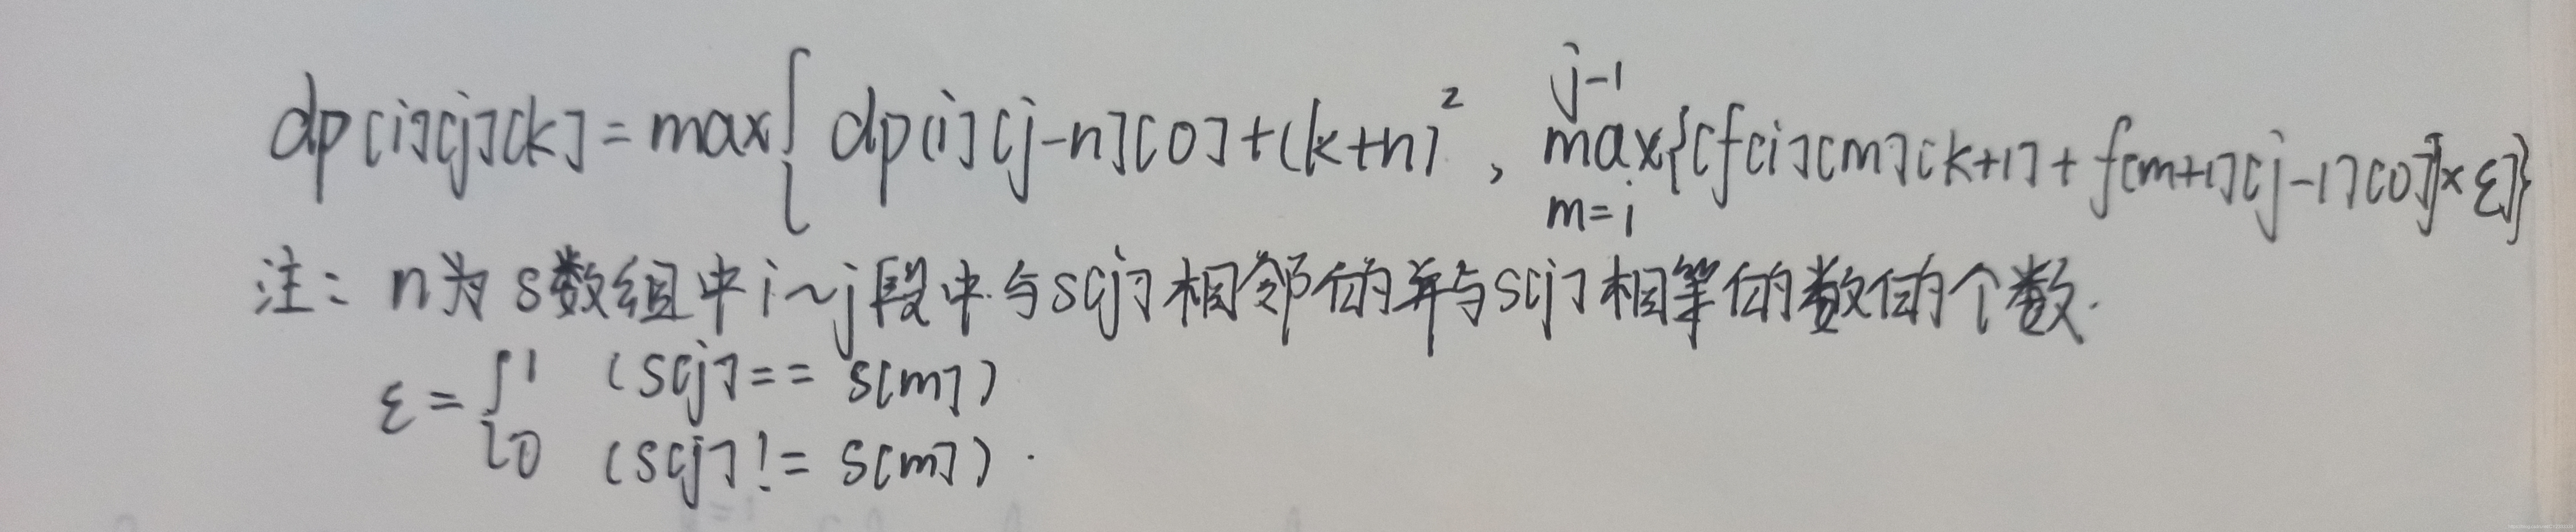 dp[i][j][k] = max{ dp[i][j-n][0]+(k+n)², max_{m=i}^{j-1}{[f[i][m][k+1]+f[m+1][j-1][0]]×ε]}
注: n为s数组中i~j段中与s[j]相邻的并与s[j]相等的数的个数.
ε = { 1 (s[j] == s[m])
0 (s[j] != s[m]).